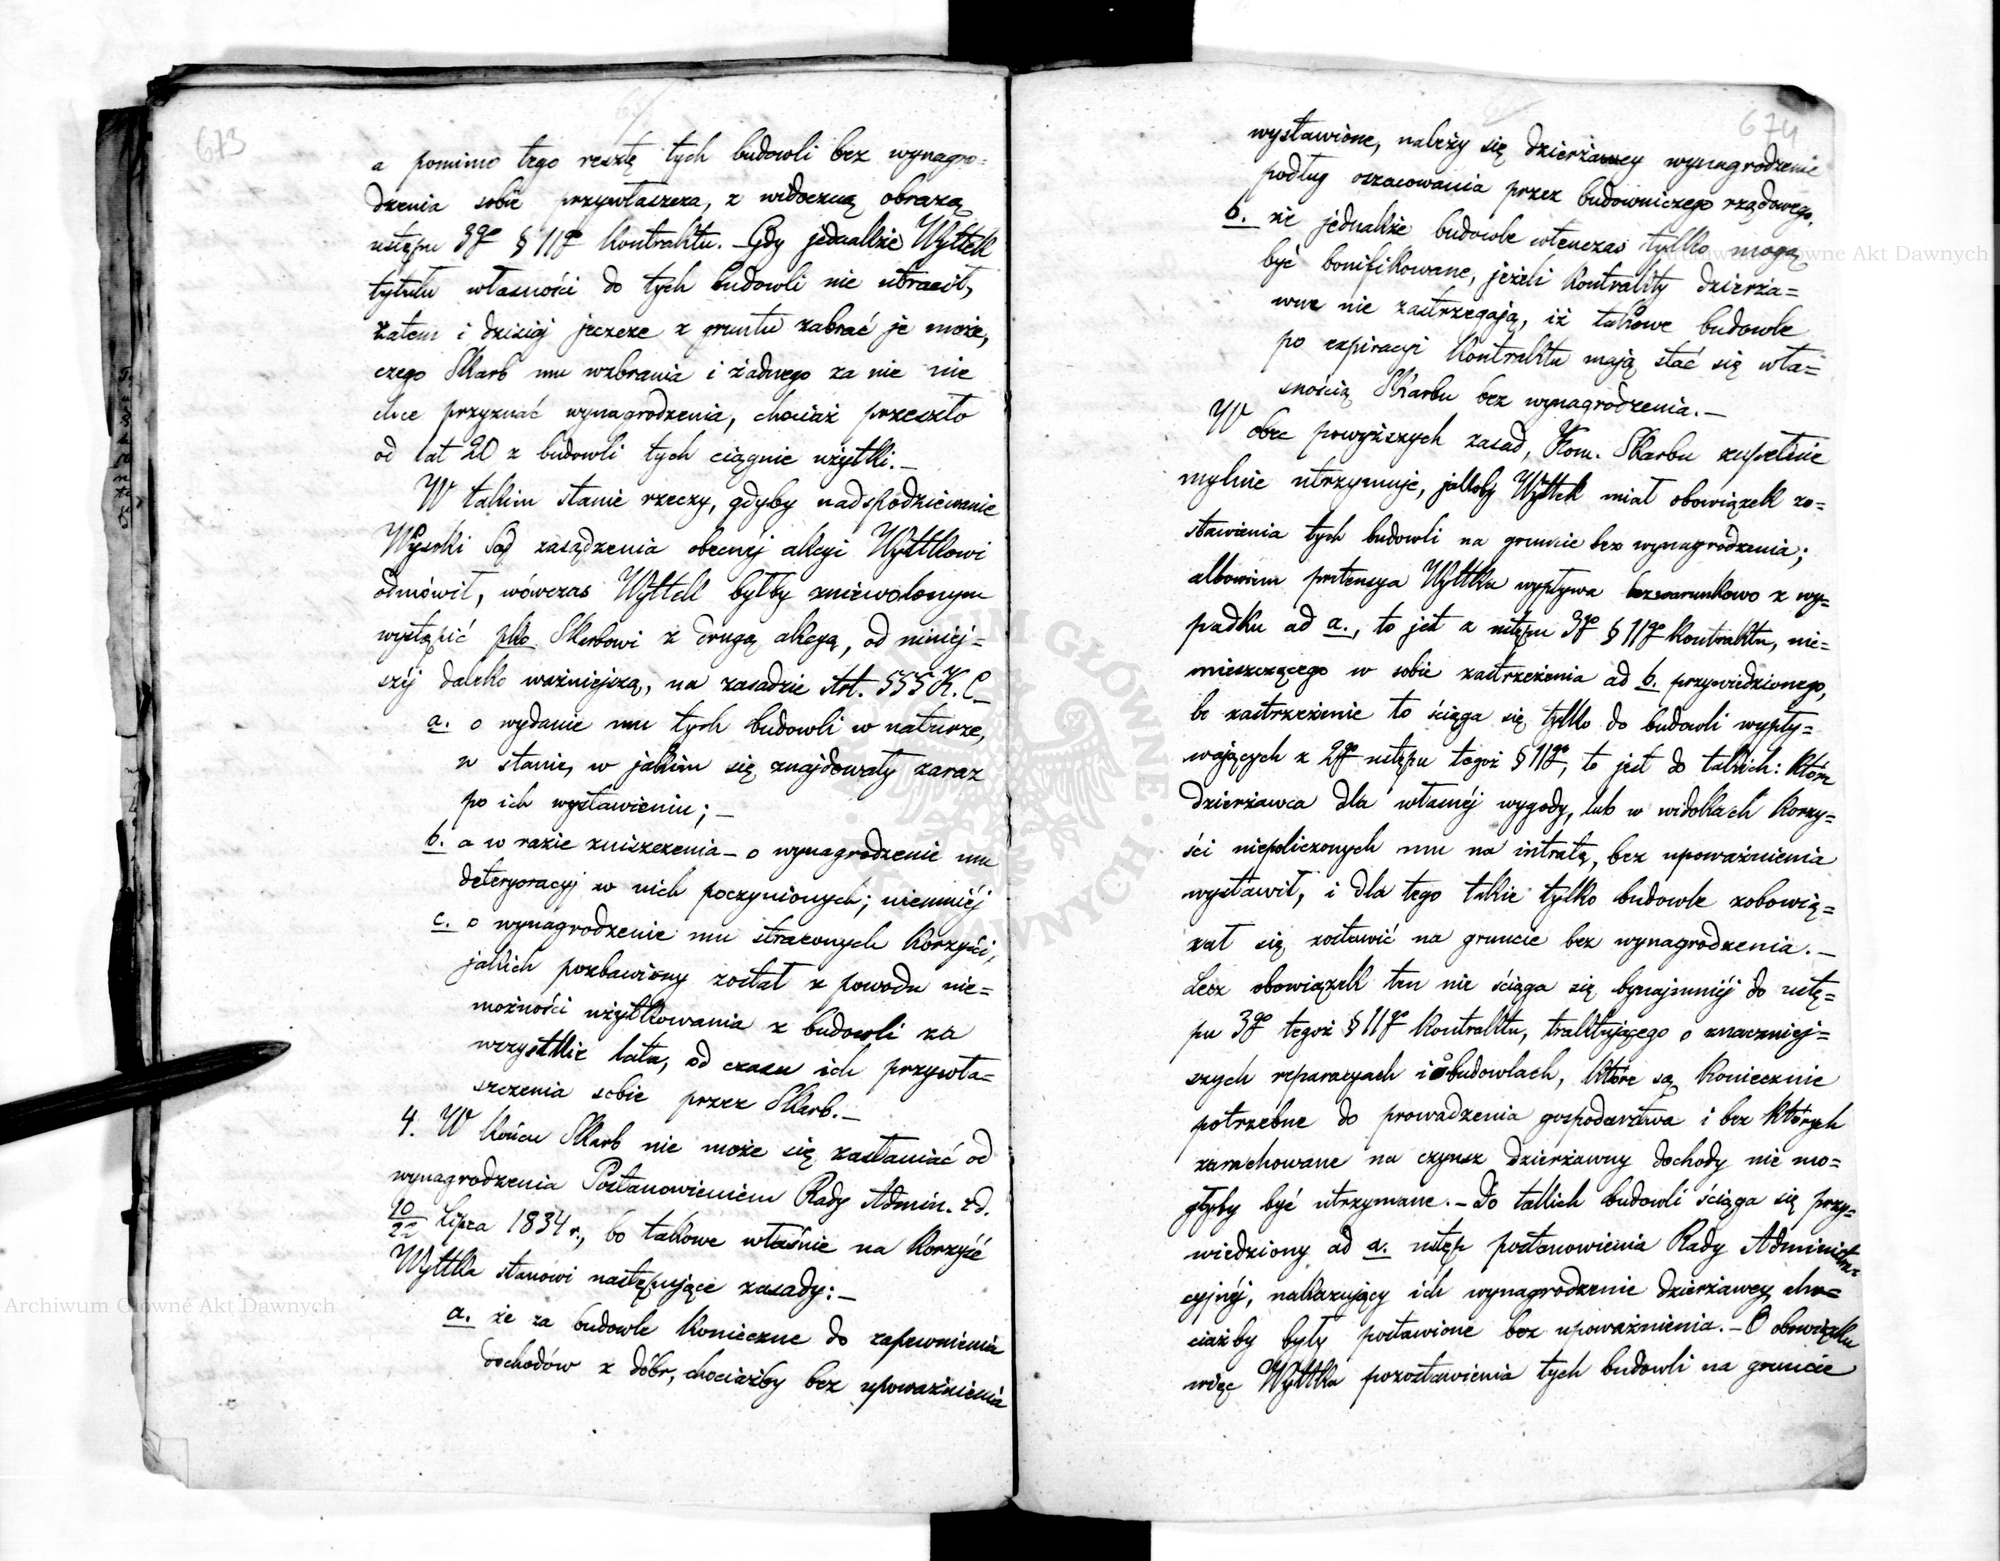 673
a pomimo tego resztę tych budowli bez wynagro=
dzenia sobie przywłaszcza, z widoczną obrazą
ustępu 3go § 11go Kontraktu. – Gdy jednakże Wyttek
tytułu własności do tych budowli nie utracił,
zatem i dzisiaj jeszcze z gruntu zabrać je może,
czego Skarb mu wzbrania i żadnego za nie nie
chce przyznać wynagrodzenia, chociaż przeszło
od lat 20 z budowli tych ciągnie użytki. –
W takim stanie rzeczy, gdyby nadspodziewanie
Wysoki Sąd zasądzenia obecnej akcyi Wyttkowi
odmówił, wówczas Wyttek byłby zniewolonym
wystąpić pko Skarbowi z drugą akcyą, od niniej=
széj daleko ważniejszą, na zasadzie Art. 555 K. C.
a. o wydanie mu tych budowli w naturze,
w stanie, w jakim się znajdowały zaraz
po ich wystawieniu; –
b. a w razie zniszczenia – o wynagrodzenie mu
deteryoracyj w nich poczynionych; niemniéj
c. o wynagrodzenie mu straconych Korzyści,
jakich pozbawiony został z powodu nie=
możności użytkowania z budowli za
wszystkie lata, od czasu ich przywła=
szczenia sobie przez Skarb. –
4. W końcu Skarb nie może się zasłaniać od
wynagrodzenia Postanowieniem Rady Admin. z d.
10/22 Lipca 1834 r., bo takowe właśnie na Korzyść
Wyttka stanowi następujące zasady: –
a. że za budowle Konieczne do zapewnienia
dochodów z dóbr, chociażby bez upoważnienia
674
wystawione, należy się dzierżawcy wynagrodzenie
podług oszacowania przez budowniczego rządowego.
b. że jednakże budowle wtenczas tylko mogą
być bonifikowane, jeżeli Kontrakty dzierża=
wne nie zastrzegają, iż takowe budowle
po expiracyi Kontraktu mają stać się wła=
snością Skarbu bez wynagrodzenia. –
W obec powyższych zasad, Kom. Skarbu zupełnie
mylnie utrzymuje, jakoby Wyttek miał obowiązek zo=
stawienia tych budowli na gruncie bez wynagrodzenia;
albowiem pretensya Wyttka wypływa bezwarunkowo z wy=
padku ad a., to jest z ustępu 3go § 11go Kontraktu, nie=
mieszczącego w sobie zastrzeżenia ad b. przywiedzionego,
bo zastrzeżenie to ściąga się tylko do budowli wypły=
wających z 2go ustępu tegoż § 11go, to jest do takich: które
dzierżawca dla własnéj wygody, lub w widokach Korzy=
ści niepoliczonych mu na intratę, bez upoważnienia
wystawił, i dla tego takie tylko budowle zobowią=
zał się zostawić na gruncie bez wynagrodzenia. –
Lecz obowiązek ten nie ściąga się bynajmniéj do ustę=
pu 3go tegoż § 11go Kontraktu, traktującego o znaczniej=
szych reparacyach i o budowlach, które są Koniecznie
potrzebne do prowadzenia gospodarstwa i bez których
zarachowane na czynsz dzierżawny dochody nie mo=
głyby być utrzymane. – Do takich budowli ściąga się przy=
wiedziony ad a. ustęp postanowienia Rady Administra=
cyjnéj, nakazujący ich wynagrodzenie dzierżawcy cho=
ciażby były postawione bez upoważnienia. – O obowiązku
więc Wyttka pozostawienia tych budowli na gruncie
Archiwum Główne Akt Dawnych
Archiwum Główne Akt Dawnych